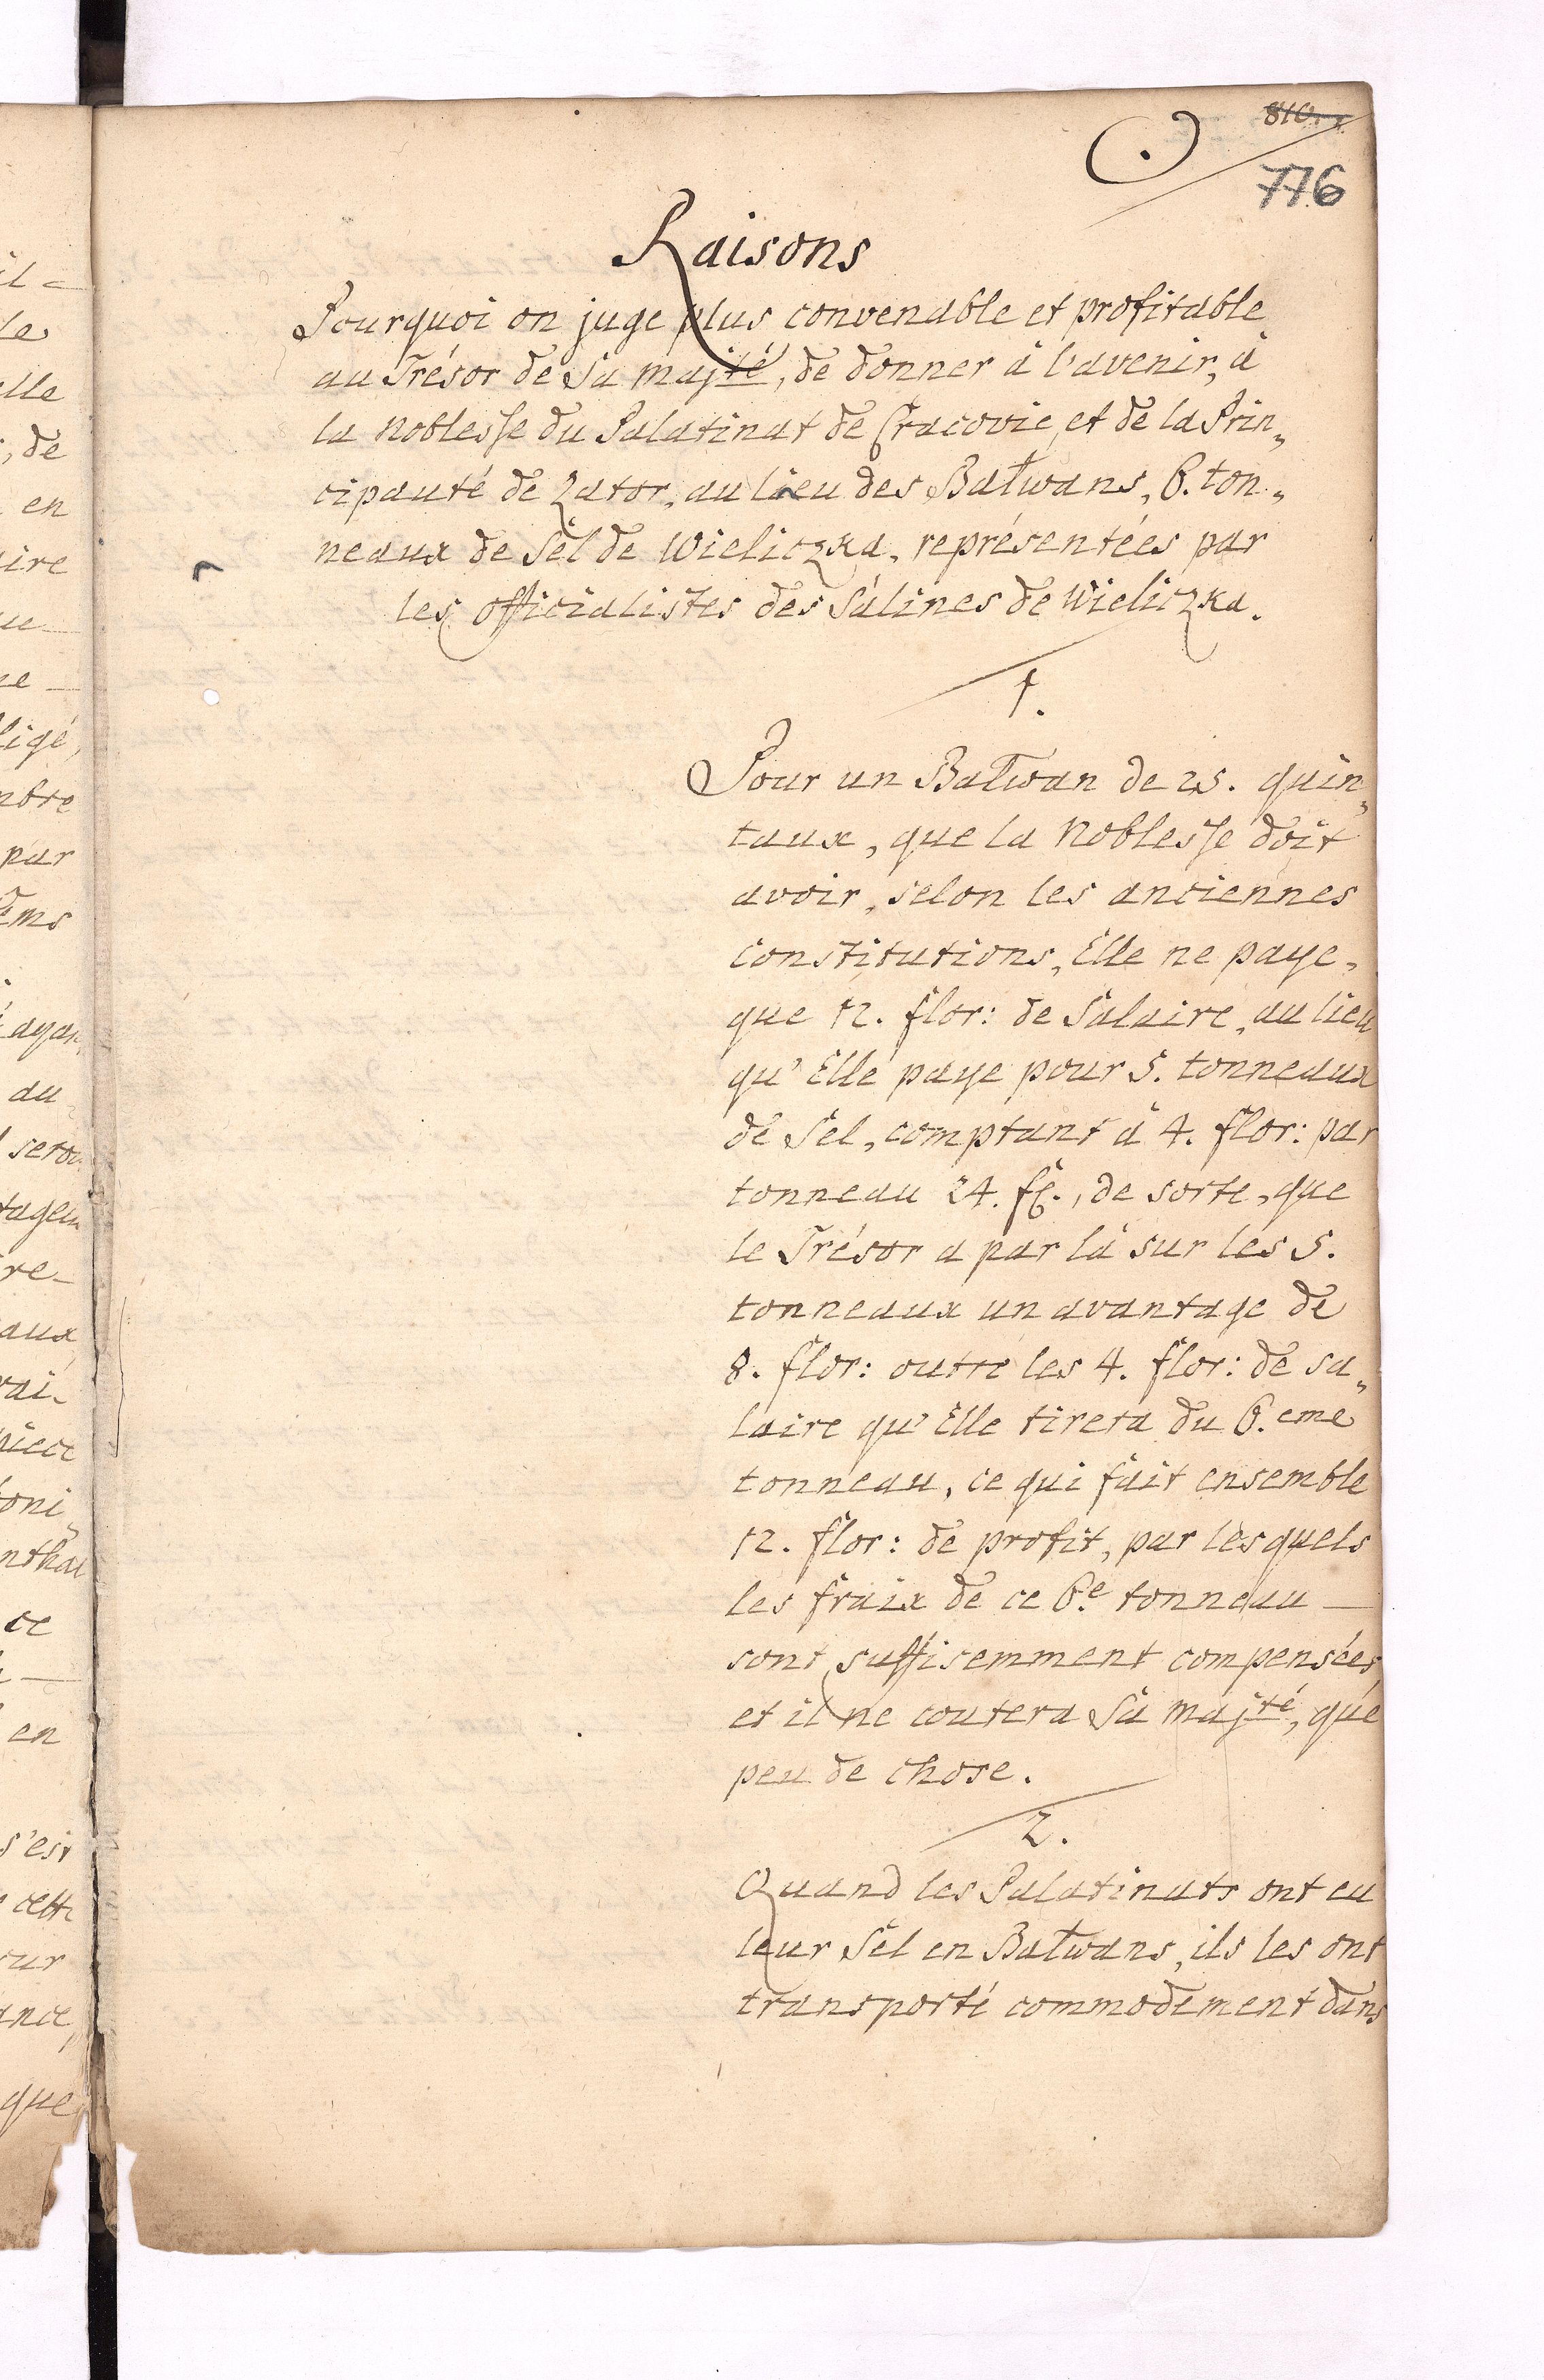 810.
776
Raisons
Pourquoi on juge plus convenable et profitable
au Trésor de Sa Majté, de donner à l'avenir, à
la Noblesse du Palatinat de Cracovie, et de la Prin„
cipauté de Zator, au lieu des Bałwans, 6. ton„
neaux de Sel de Wieliczka, représentées par
les Officialistes des Salines de Wieliczka.
1.
Pour un Bałwan de 25. quin„
taux, que la Noblesse doit
avoir, selon les anciennes
constitutions, Elle ne paye,
que 12. flor: de Salaire, au lieu
qu'Elle paye pour 5. tonneaux
de Sel, comptant à 4. flor: par
tonneau 24. fl., de sorte, que
le Trésor a par là sur les 5.
tonneaux un avantage de
8. flor: outre les 4. flor: de sa„
laire qu'Elle tirera du 6.eme
tonneau, ce qui fait ensemble
12. flor: de profit, par lesquels
les fraix de ce 6.e tonneau —
sont suffisemment compensées,
et il ne coutera Sa Majté, que
peu de chose.
2.
Quand les Palatinats ont eu
leur Sel en Bałwans, ils les ont
transporté commodement dans
il =
le
elle
; de
en
ire
ue
ne —
ligé,
mbre
par
tems
ayan„
du
seroi
tagem
re-
aux
rai-
niece
toni„
nthal
ce
en
s'est
cette
our
ance,
que